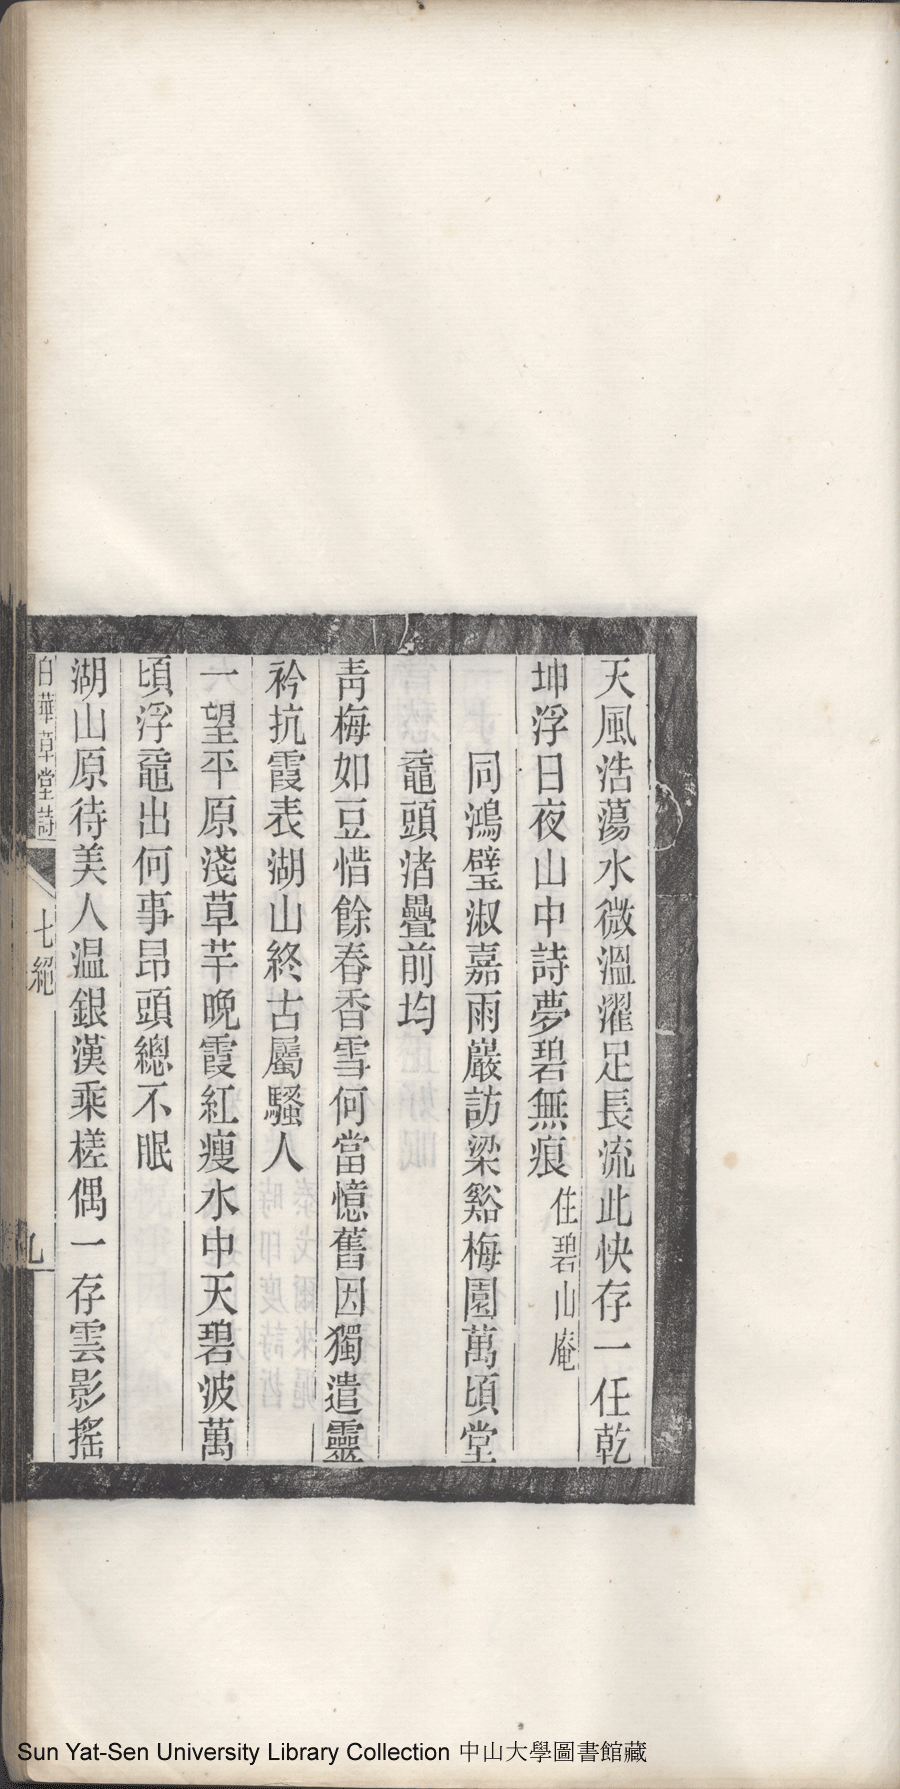 天風浩蕩水微溫濯足長流此快存一任乾
坤浮日夜山中詩夢碧無痕 住碧山庵
同鴻璧淑嘉雨巖訪梁谿梅園萬頃堂
黿頭渚疊前均
靑梅如豆惜餘春香雪何當憶舊因獨遣靈
衿抗霞表湖山終古屬騷人
一望平原淺草芊晚霞紅瘦水中天碧波萬
頃浮黿出何事昂頭總不眠
湖山原待美人温銀漢乘槎偶一存雲影搖
白華草堂詩 七絕 九
Sun Yat-Sen University Library Collection 中山大學圖書館藏